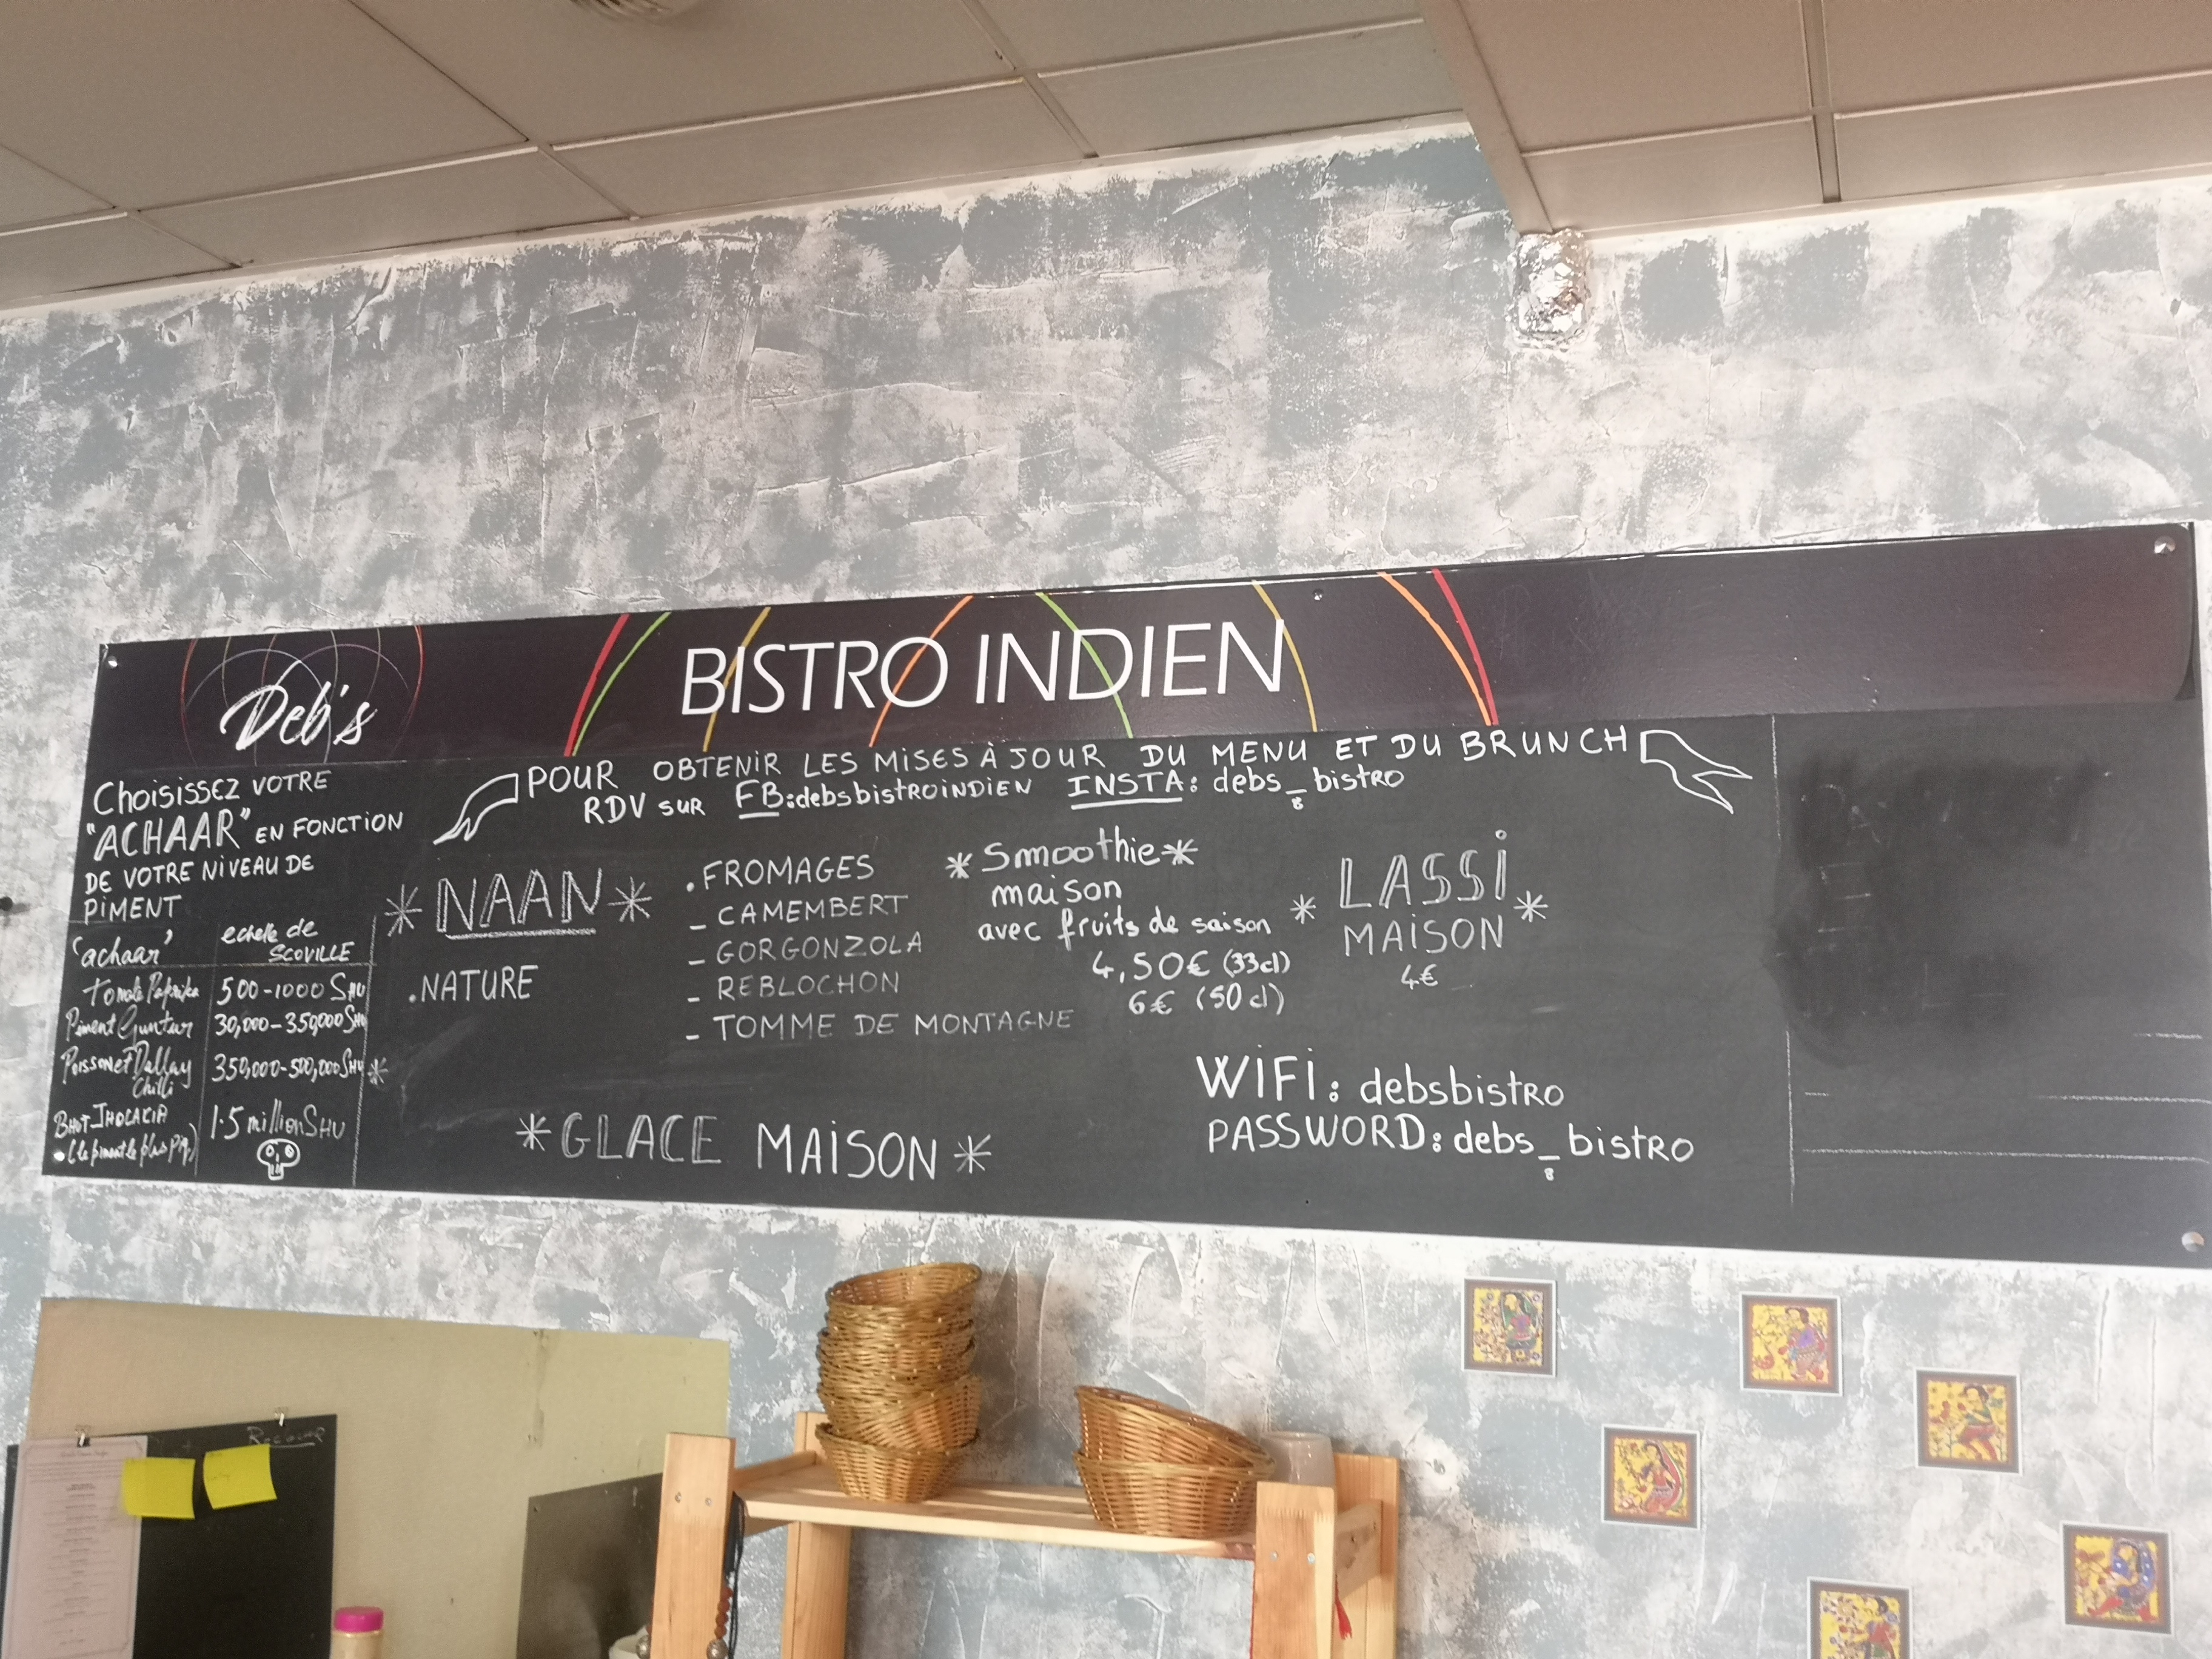 Deb's
BISTRO INDIEN
Choisissez VOTRE
"ACHAAR" EN FONCTION
DE VOTRE NIVEAU DE
PIMENT
'achaar' echelle de SCOVILLE
Tomate Paprika 500-1000 SHU
Piment Guntur 30,000-350,000 SHU
Poisson et Dallay Chilli 350,000-500,000 SHU *
BHUT JHOLAKIA 1.5 million SHU
(le piment le plus piq.)
POUR OBTENIR LES MISES À JOUR DU MENU ET DU BRUNCH
RDV SUR FB:debsbistroindien INSTA: debs_bistro
8
* NAAN *
.NATURE
.FROMAGES
- CAMEMBERT
- GORGONZOLA
- REBLOCHON
- TOMME DE MONTAGNE
* Smoothie *
maison
avec fruits de saison
4,50€ (33cl)
6€ (50cl)
* LASSI *
MAISON
4€
* GLACE MAISON *
WIFI: debsbistro
PASSWORD: debs_bistro
8